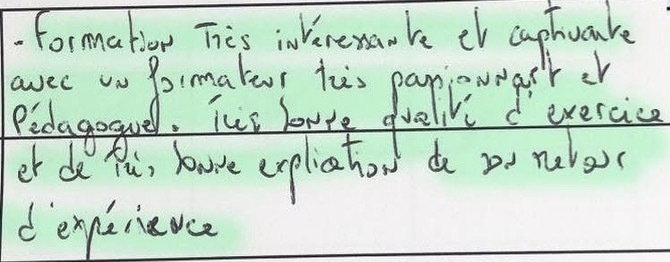 - Formation Très intéressante et captivante
avec un formateur très passionnant et
Pédagogue. Très bonne qualité d'exercice
et de Très bonne explication de son retour
d'expérience